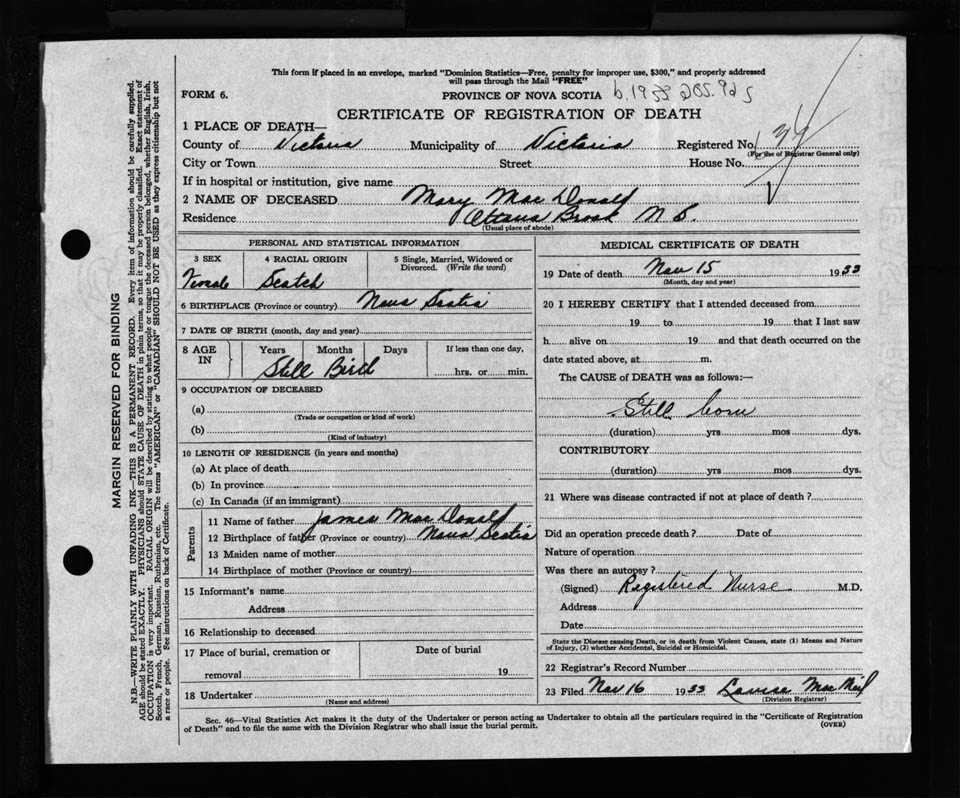 This form if placed in an envelope, marked "Dominion Statistics—Free, penalty for improper use, $300," and properly addressed
will pass through the Mail "FREE"
FORM 6. PROVINCE OF NOVA SCOTIA b.1955
CERTIFICATE OF REGISTRATION OF DEATH
1 PLACE OF DEATH—
County of Victoria Municipality of Victoria Registered No.
(For use of Registrar General only)
City or Town Street House No.
If in hospital or institution, give name
2 NAME OF DECEASED Mary MacDonald
Residence Ottawa Brook N S.
(Usual place of abode)
PERSONAL AND STATISTICAL INFORMATION
3 SEX 4 RACIAL ORIGIN 5 Single, Married, Widowed or
Divorced. (Write the word)
Female Scotch
6 BIRTHPLACE (Province or country) Nova Scotia
7 DATE OF BIRTH (month, day and year)
8 AGE IN Years Months Days If less than one day,
hrs. or min.
Still Birth
9 OCCUPATION OF DECEASED
(a)
(Trade or occupation or kind of work)
(b)
(Kind of industry)
10 LENGTH OF RESIDENCE (in years and months)
(a) At place of death
(b) In province
(c) In Canada (if an immigrant)
Parents
11 Name of father James MacDonald
12 Birthplace of father (Province or country) Nova Scotia
13 Maiden name of mother
14 Birthplace of mother (Province or country)
15 Informant's name
Address
16 Relationship to deceased
17 Place of burial, cremation or Date of burial
removal 19
18 Undertaker
(Name and address)
MEDICAL CERTIFICATE OF DEATH
19 Date of death Nov 15 1933
(Month, day and year)
20 I HEREBY CERTIFY that I attended deceased from
19 to 19 that I last saw
h alive on 19 and that death occurred on the
date stated above, at m.
The CAUSE of DEATH was as follows:—
Still born
(duration) yrs mos dys.
CONTRIBUTORY
(duration) yrs mos dys.
21 Where was disease contracted if not at place of death ?
Did an operation precede death ? Date of
Nature of operation
Was there an autopsy ?
(Signed) Registered Nurse M.D.
Address
Date
State the Disease causing Death, or in death from Violent Causes, state (1) Means and Nature
of Injury, (2) whether Accidental, Suicidal or Homicidal.
22 Registrar's Record Number
23 Filed Nov 16 1933 MacNeil
(Division Registrar)
Sec. 46—Vital Statistics Act makes it the duty of the Undertaker or person acting as Undertaker to obtain all the particulars required in the "Certificate of Registration
of Death" and to file the same with the Division Registrar who shall issue the burial permit. (OVER)
MARGIN RESERVED FOR BINDING
N.B.—WRITE PLAINLY WITH UNFADING INK—THIS IS A PERMANENT RECORD. Every item of information should be carefully supplied.
AGE should be stated EXACTLY. PHYSICIANS should STATE CAUSE OF DEATH in plain terms, so that it may be properly classified. Exact statement of
OCCUPATION is very important. RACIAL ORIGIN will be described by stating to what people or tongue the deceased person belonged, whether English, Irish,
Scotch, French, German, Russian, Ruthenian, etc. The terms "AMERICAN" or "CANADIAN" SHOULD NOT BE USED as they express citizenship but not
a race or people. See instructions on back of Certificate.